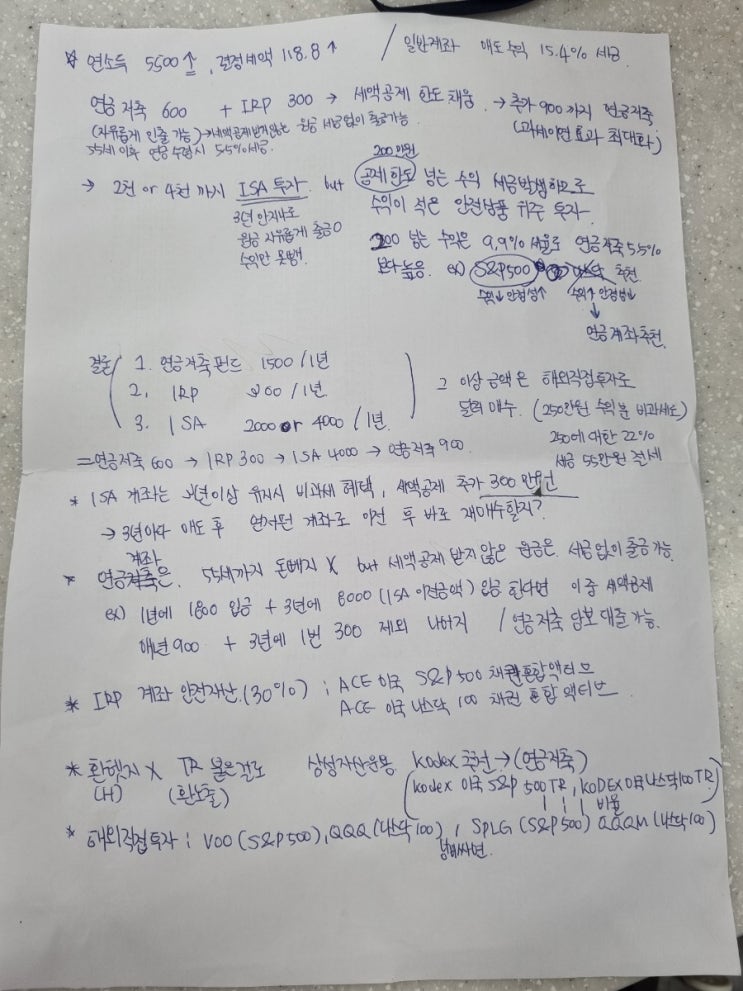 ☆ 연소득 5500↑, 결정세액 118.8↑ / 일반계좌 매도 수익 15.4% 세금
연금저축 600 + IRP 300 → 세액공제 한도 채움 → 추가 900까지 연금저축
(자유롭게 인출 가능) → 세액공제 받지않는 원금 세금없이 출금가능 (과세이연 효과 최대화)
55세 이후 연금 수령시 5.5% 세금.
200만원
→ 2천 or 4천 까지 ISA 투자. but 공제한도 넘는 수익 세금발생하므로
3년 안지나도 수익이 적은 안전상품 위주 투자
원금 자유롭게 출금O
수익만 못뺌 200 넘는 수익은 9.9% 세율로 연금저축 5.5%
보다 높음. ex) S&P500 추천
수익↓ 안정성↑ 수익↑ 안정성↓
↓
연금계좌추천.
결론 1. 연금저축펀드 1500/1년
2. IRP 300/1년. 그 이상 금액은 해외직접투자로
3. ISA 2000 or 4000/1년. 달러 매수. (250만원 수익분 비과세)
=연금저축 600 → IRP 300 → ISA 4000 → 연금저축 900. 250에 대한 22%
세금 55만원 절세
* ISA 계좌는 3년이상 유지시 비과세 혜택, 세액공제 추가 300만원
→ 3년마다 매도 후 연저펀 계좌로 이전 후 바로 재매수할지?
계좌
* 연금은. 55세까지 돈빼지 X but 세액공제 받지 않은 원금은. 세금없이 출금 가능.
ex) 1년에 1800 입금 + 3년에 8000 (ISA 이전금액) 입금 한다면 이 중 세액공제
매년 900 + 3년에 1번 300 제외 나머지 / 연금저축 담보 대출 가능.
* IRP 계좌 안전자산.(30%) ; ACE 미국 S&P500 채권혼합액티브
ACE 미국 나스닥 100 채권 혼합 액티브
* 환헷지 X TR 붙은걸로 삼성자산운용 Kodex → (연금저축)
(H) (환노출) (Kodex 미국 S&P 500TR, KODEX 미국나스닥100 TR)
1 : 1 비율
* 해외직접투자 ; VOO (S&P500), QQQ (나스닥 100) , SPLG (S&P500) QQQM (나스닥100)